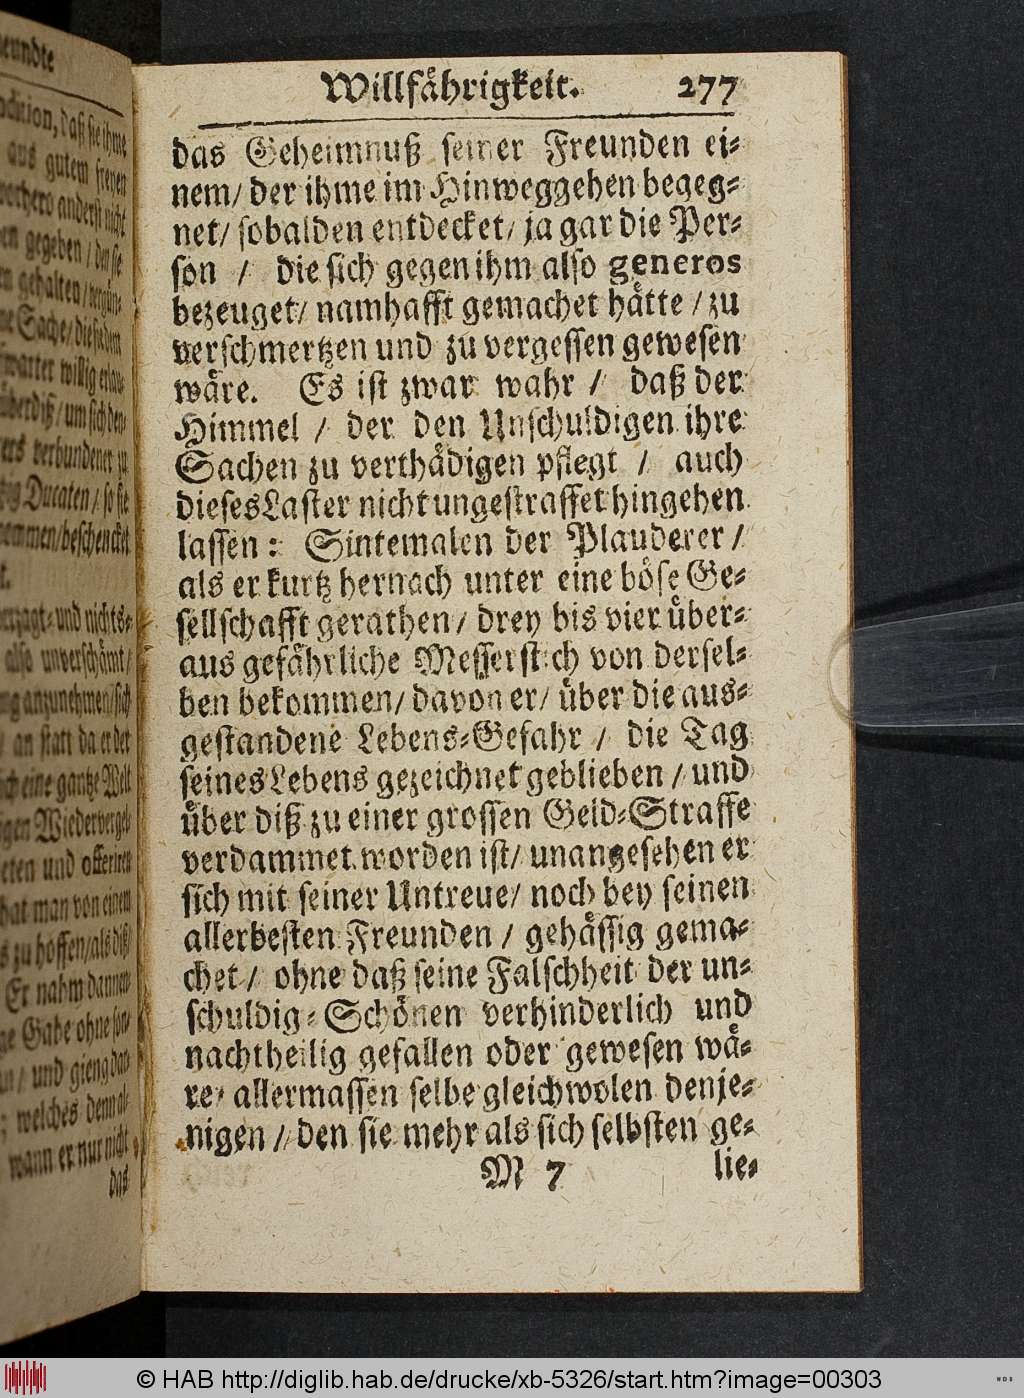 Willfåhrigkeit. 277
das Geheimnuß seiner Freunden ei-
nem/ der ihme im Hinweggehen begeg-
net/ sobalden entdecket/ ja gar die Per-
son / die sich gegen ihm also generos
bezeuget/ namhafft gemachet håtte / zu
verschmertzen und zu vergessen gewesen
wåre. Es ist zwar wahr / daß der
Himmel / der den Unschuldigen ihre
Sachen zu verthådigen pflegt / auch
dieses Laster nicht ungestraffet hingehen
lassen: Sintemalen der Plauderer /
als er kurtz hernach unter eine bôse Ge-
sellschafft gerathen/ drey bis vier ůber-
aus gefåhrliche Messerstich von dersel-
ben bekommen/ davon er/ ůber die aus-
gestandene Lebens-Gefahr / die Tag
seines Lebens gezeichnet geblieben / und
ůber diß zu einer grossen Geld-Straffe
verdammet worden ist/ unangesehen er
sich mit seiner Untreue/ noch bey seinen
allerbesten Freunden / gehåssig gema-
chet / ohne daß seine Falschheit der un-
schuldig-Schônen verhinderlich und
nachtheilig gefallen oder gewesen wå-
re/ allermassen selbe gleichwolen denje-
nigen / den sie mehr als sich selbsten ge-
M 7 lie-
eundte
dition, daß sie ihme
aus gutem freyen
anderst nicht
gegeben / der sie
gehalten / vergůn-
Sache / die
willig
ůberdiß / um sich
verbundener zu
Ducaten / so sie
nommen / beschencket
und nichts-
also unverschåmt /
anzunehmen / sich
/ an statt da er det
eine gantze Welt
Wiedervergel-
und offeriren
hat man von einem
zu hoffen / als diß
Er nahm dannen-
Gabe ohne son-
/ und gieng dar-
; welches
wann er nur nicht
das
© HAB http://diglib.hab.de/drucke/xb-5326/start.htm?image=00303